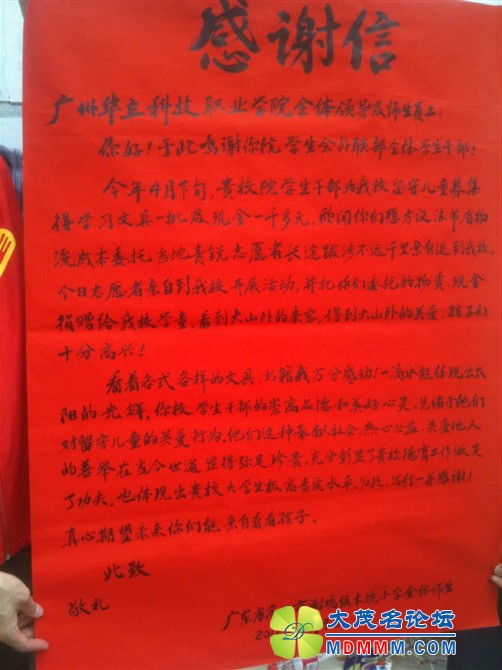 感谢信
广州华立科技职业学院全体领导及师生员工：
你好！于此鸣谢你院学生会外联部全体学生干部！
今年4月下旬，贵校院学生干部为我校留守儿童募集
得学习文具一批及现金一千多元，
流成本委托当地青锐志愿者长途跋涉不远千里亲自送到我校，
今日志愿者亲自到我校开展活动，并把你们委托的物资、现金
捐赠给我校学童，看到大山外的来客，得到大山外的关爱，孩子们
十分高兴！
看着各式各样的文具、书籍我万分感动！一滴水能体现出太
阳的光辉，你校学生干部的崇高品德和美好心灵，见诸于他们
对留守儿童的关爱行为，他们这种奉献社会、热心公益、关爱他人
的善举在当今世道显得弥足珍贵，充分彰显了贵校德育工作做足
了功夫，也体现出贵校大学生极高素质水平，为此，写信一并感谢！
真心期望未来你们能亲自看看孩子。
此致
敬礼
广东省 镇木坑小学全体师生
20
大茂名论坛
MDMMM.COM